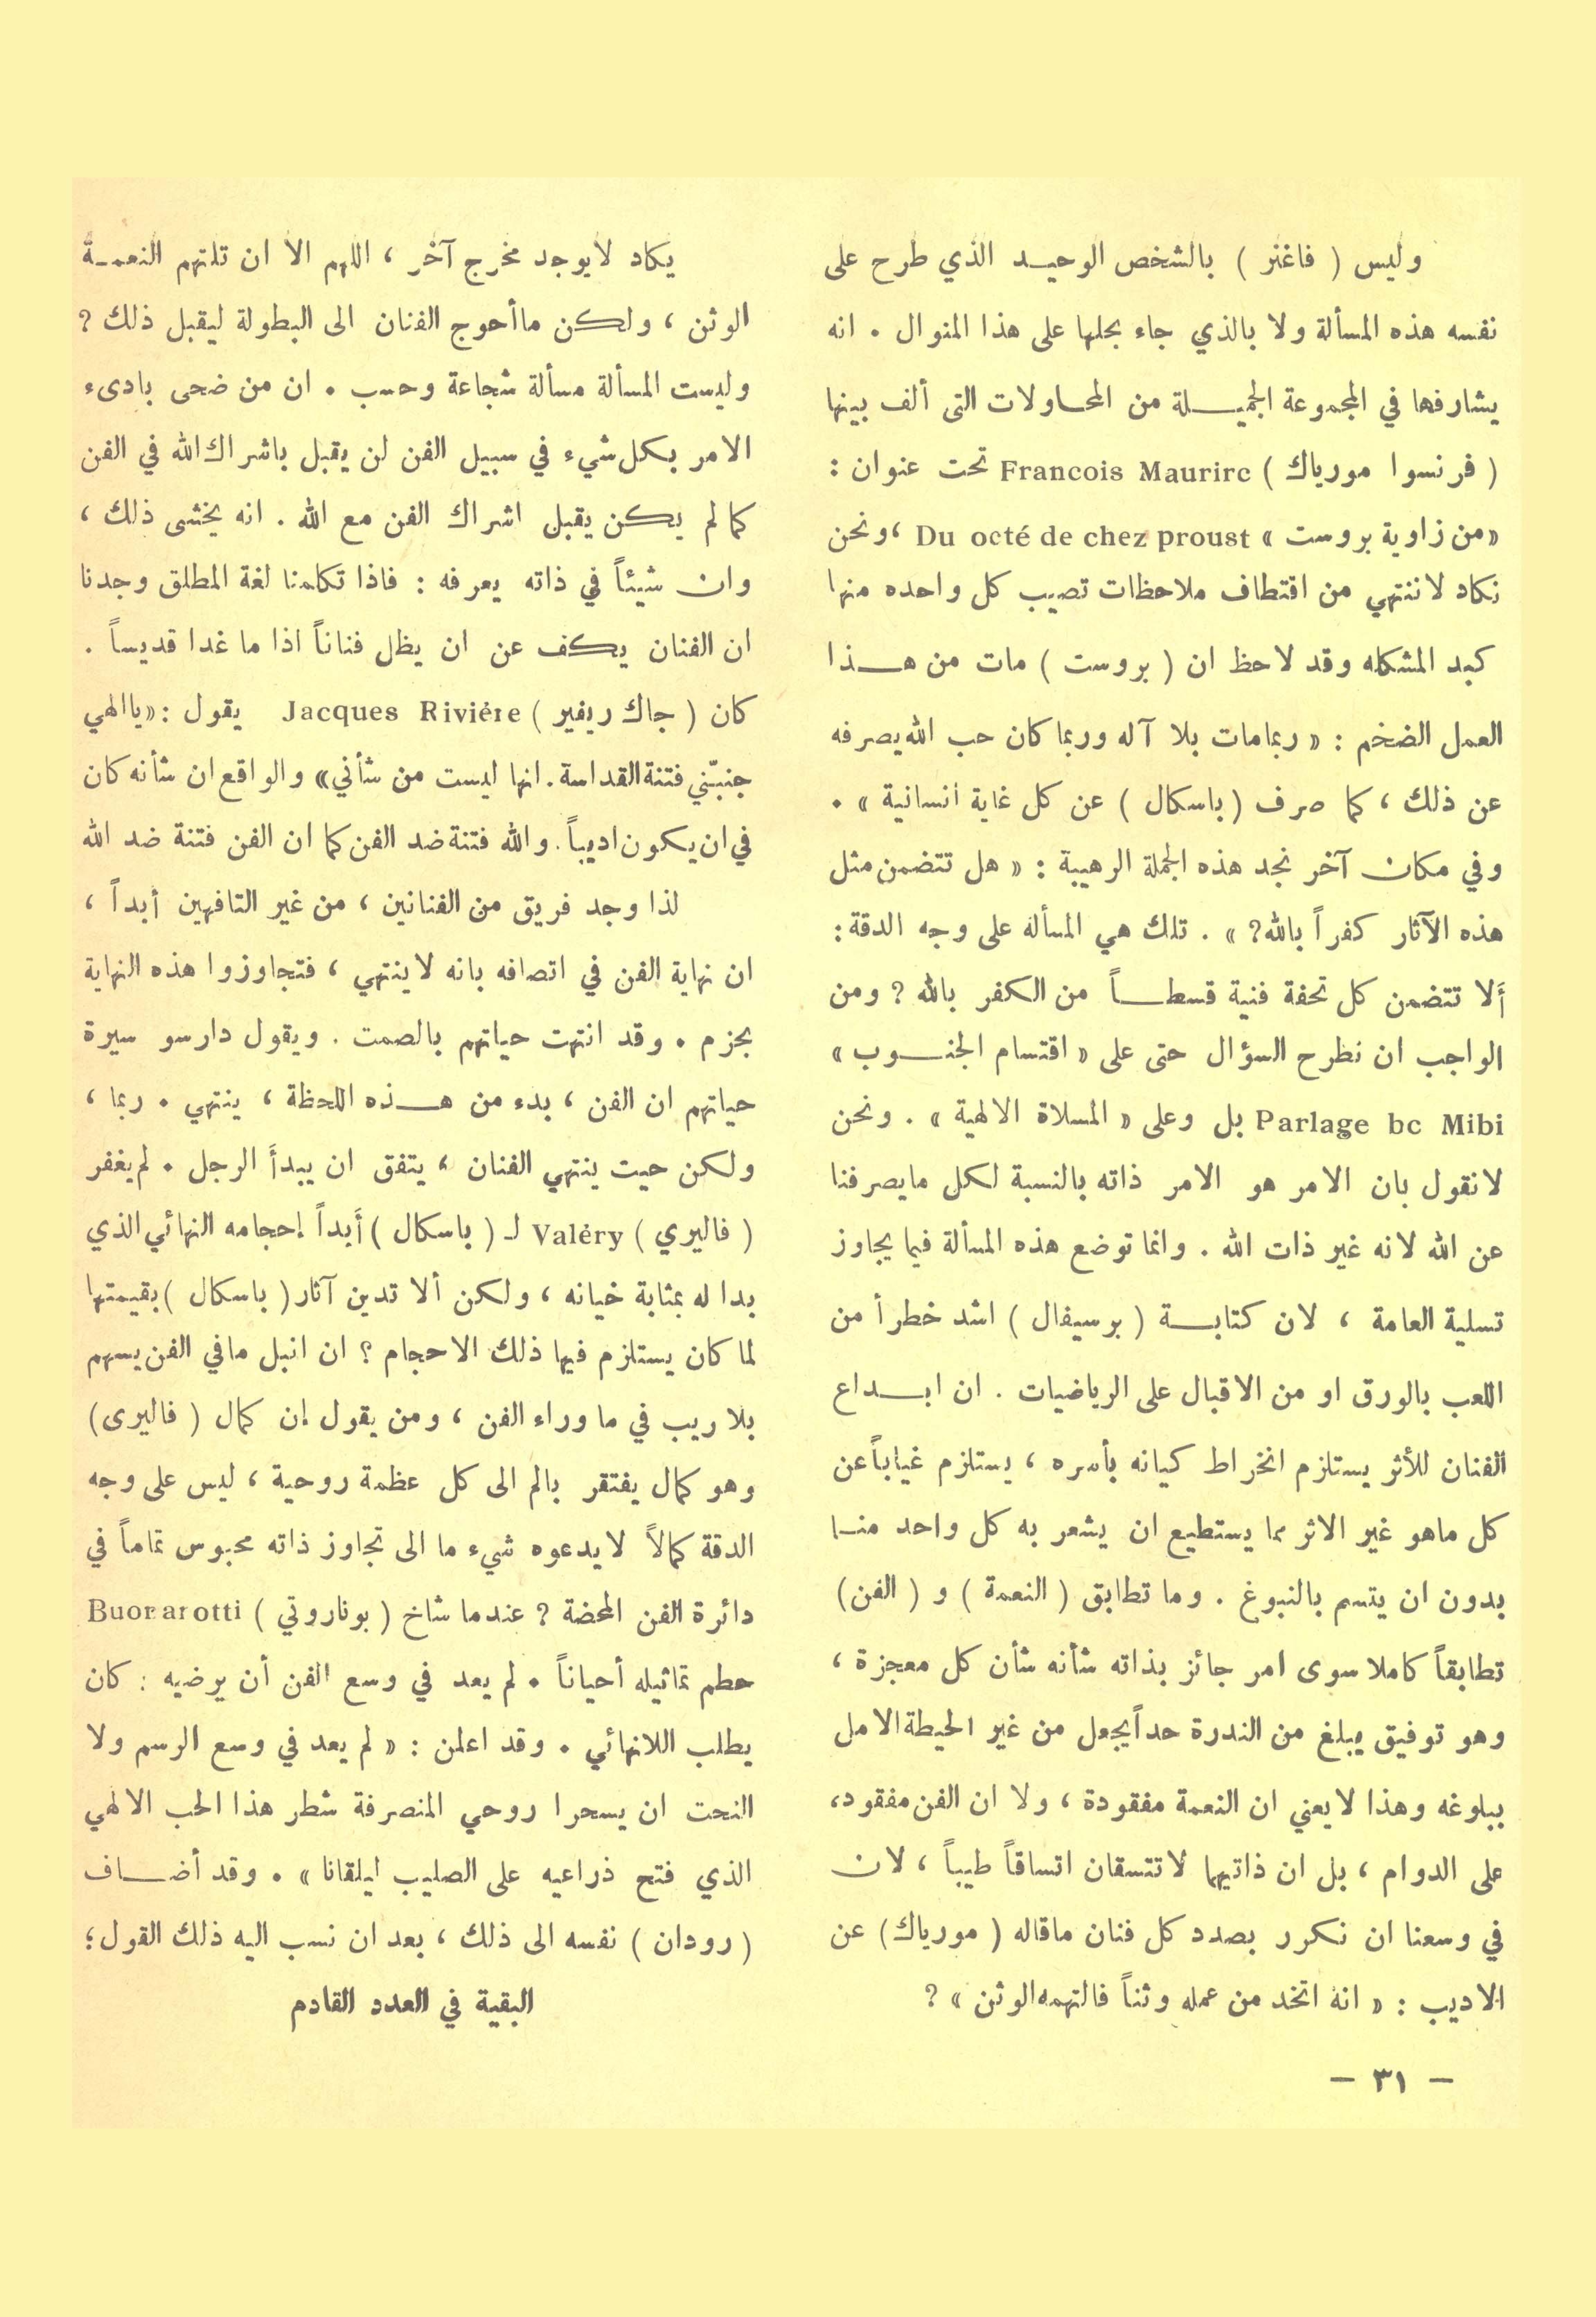 وليس ( فاغنر ) بالشخص الوحيد الذي طرح على
نفسه هذه المسألة ولا بالذي جاء بحلها على هذا المنوال . انه
يشارفها في المجموعة الجميلة من المحاولات التى ألف بينها
( فرنسوا مورياك ) Francois Maurirc تحت عنوان :
«من زاوية بروست » Du octé de chez proust ،ونحن
نكاد لاننتهي من اقتطاف ملاحظات تصيب كل واحده منها
كبد المشكله وقد لاحظ ان ( بروست ) مات من هذا
العمل الضخم : « ربمامات بلا آله وربما كان حب الله يصرفه
عن ذلك ، كما صرف ( باسكال ) عن كل غاية انسانية » .
وفي مكان آخر نجد هذه الجملة الرهيبة : « هل تتضمن مثل
هذه الآثار كفراً بالله؟ » . تلك هي المسألة على وجه الدقة :
ألا تتضمن كل تحفة فنية قسطاً من الكفر بالله ؟ ومن
الواجب ان نطرح السؤال حتى على « اقتسام الجنوب »
Parlage bc Mibi بل وعلى « المسلاة الالهية » . ونحن
لانقول بان الامر هو الامر ذاته بالنسبة لكل مايصرفنا
عن الله لانه غير ذات الله . وانما توضع هذه المسألة فيما يجاوز
تسلية العامة ، لان كتابة ( برسيفال ) اشد خطرأ من
اللعب بالورق او من الاقبال على الرياضيات . ان ابداع
الفنان للأثر يستلزم انخراط كيانه بأسره ، يستلزم غياباً عن
كل ماهو غير الاثر مما يستطيع ان يشعر به كل واحد منا
بدون ان يتسم بالنبوغ . وما تطابق ( النعمة ) و ( الفن)
تطابقاً كاملا سوى امر جائز بذاته شأنه شأن كل معجزة ،
وهو توفيق يبلغ من الندرة حداً يجعل من غير الحيطة الامل
ببلوغه وهذا لايعني ان النعمة مفقودة ، ولا ان الفن مفقود،
على الدوام ، بل ان ذاتيهما لاتتسقان اتساقاً طيباً ، لان
في وسعنا ان نكرر بصدد كل فنان ماقاله ( مورياك) عن
الاديب : « انه اتخد من عمله وثناً فالتهمه الوثن » ؟
يكاد لايوجد مخرج آخر ، اللهم الا ان تلتهم النعمة
الوثن ، ولكن ماأحوج الفنان الى البطولة ليقبل ذلك ؟
وليست المسألة مسألة شجاعة وحسب . ان من ضحى بادىء
الامر بكل شيء في سبيل الفن لن يقبل باشراك الله في الفن
كما لم يكن يقبل اشراك الفن مع الله . انه يخشى ذلك ،
وان شيئاً في ذاته يعرفه : فاذا تكلمنا لغة المطلق وجدنا
ان الفنان يكف عن ان يظل فناناً اذا ما غدا قديساً .
كان ( جاك ريفير ) Jacques Riviére يقول :«ياالهي
جنبّني فتنة القداسة. انها ليست من شأني» والواقع ان شأنه كان
في ان يكون اديباً. والله فتنة ضد الفن كما ان الفن فتنة ضد الله
لذا وجد فريق من الفنانين ، من غير التافهين أبداً ،
ان نهاية الفن في اتصافه بانه لاينتهي ، فتجاوزوا هذه النهاية
بجزم . وقد انتهت حياتهم بالصمت . ويقول دارسو سيرة
حياتهم ان الفن ، بدء من هذه اللحظة ، ينتهي . ربما ،
ولكن حيت ينتهي الفنان ، يتفق ان يبدأ الرجل . لم يغفر
( فاليري ) Valéry لـ ( باسكال ) أبداً إحجامه النهائي الذي
بدا له بمثابة خيانه ، ولكن ألا تدين آثار ( باسكال ) بقيمتها
لما كان يستلزم فيها ذلك الاحجام ؟ ان انبل مافي الفن يسهم
بلا ريب في ما وراء الفن ، ومن يقول إن كمال ( فاليرى)
وهو كمال يفتقر بالم الى كل عظمة روحية ، ليس على وجه
الدقة كمالاً لايدعوه شيء ما الى تجاوز ذاته محبوس تماماً في
دائرة الفن المحضة ؟ عندما شاخ ( بوناروتي ) Buonarotti
حطم تماثيله أحياناً . لم يعد في وسع الفن أن يرضيه : كان
يطلب اللانهائي . وقد اعلن : « لم يعد في وسع الرسم ولا
النحت ان يسحرا روحي المنصرفة شطر هذا الحب الالهي
الذي فتح ذراعيه على الصليب ليلقانا » . وقد أضاف
( رودان ) نفسه الى ذلك ، بعد ان نسب اليه ذلك القول ؛
البقية في العدد القادم
— ٣١ —